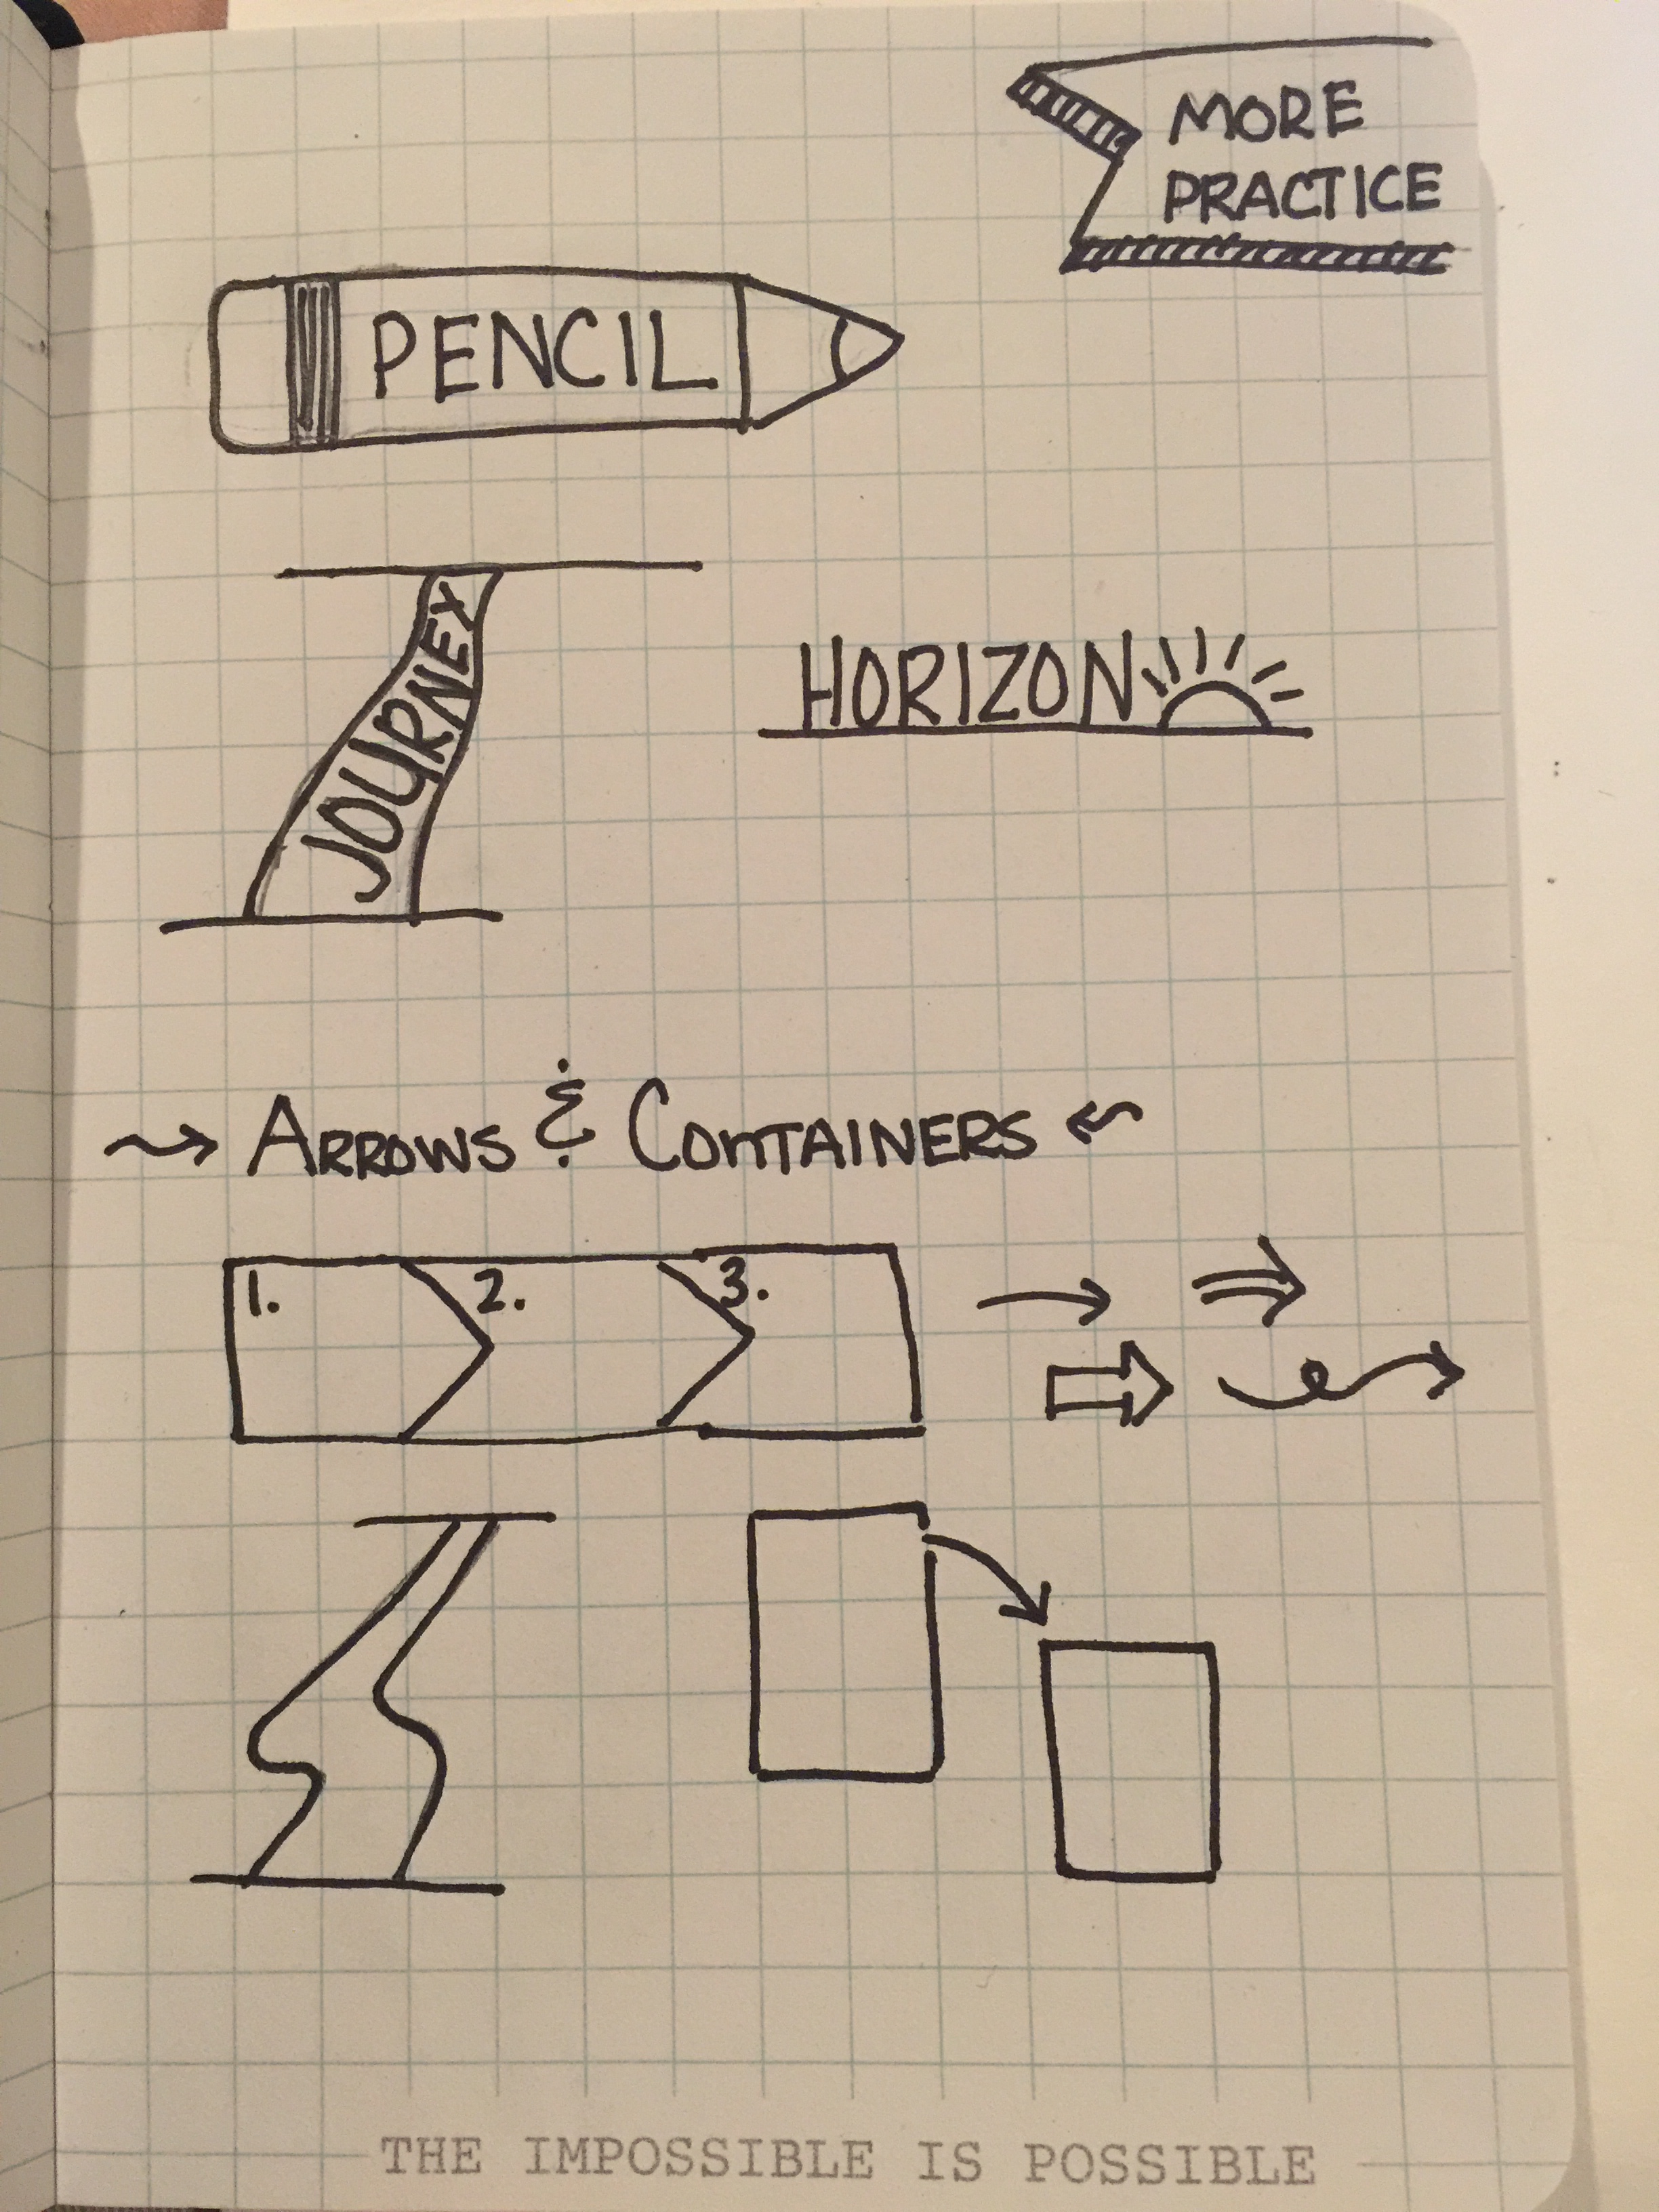 MORE
PRACTICE
PENCIL
JOURNEY
HORIZON
ARROWS & CONTAINERS
1. 2. 3.
THE IMPOSSIBLE IS POSSIBLE